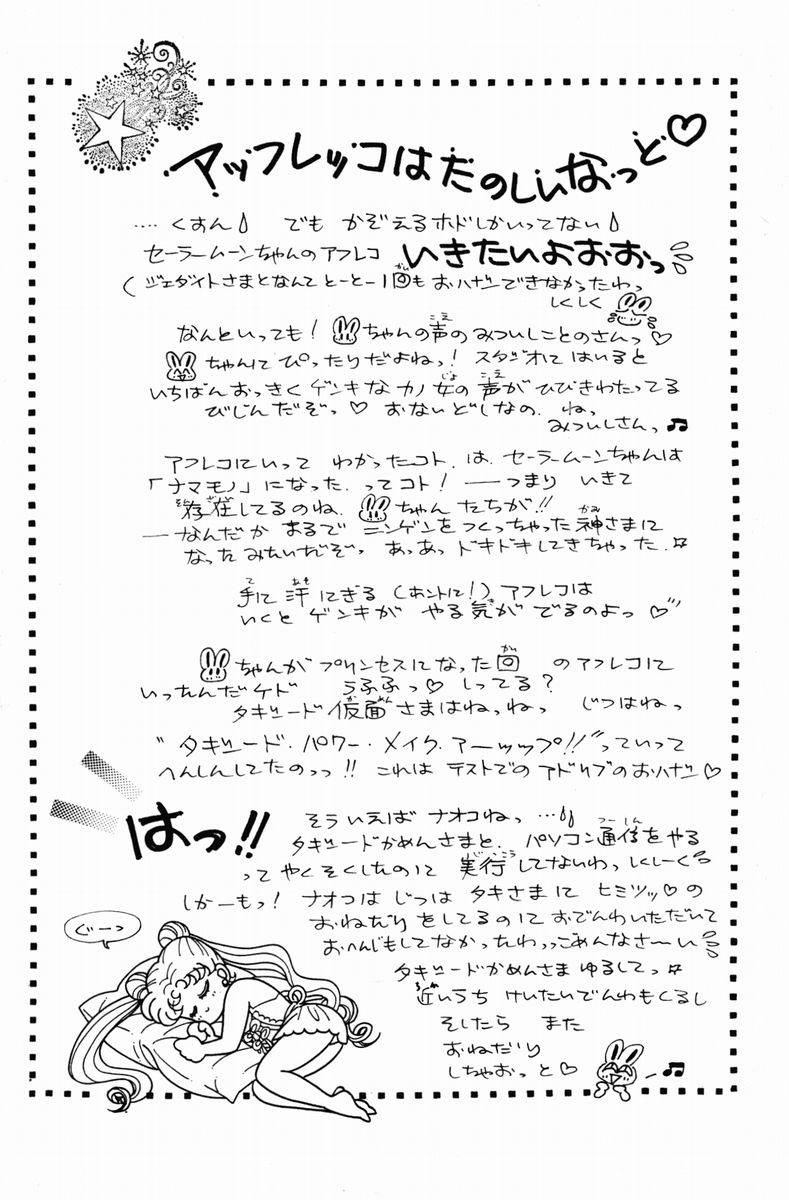 アッフレッコはたのしいなっと♡
‥‥くすん でも かぞえるホドしかいってない
セーラームーンちゃんのアフレコ いきたいよおおっ
(ジェダイトさまとなんて とーとー1回もおハナシできなかったわっ
しくしく
なんといっても! ちゃんの声のみついしことのさんっ♡
ちゃんにぴったりだよねっ! スタジオにはいると
いちばんおっきくゲンキなカノ女の声がひびきわたってる
びじんだぞっ♡ おないどしなの、ねっ
みついしさんっ♫
アフレコにいって わかったコト、は、セーラームーンちゃんは
「ナマモノ」になった、ってコト! ──つまり いきて
存在してるのね、 ちゃんたちが!!
──なんだか まるで ニンゲンをつくっちゃった神さまに
なったみたいだぞっ あっあっ ドキドキしてきちゃった、☆
手に汗にぎる (ホントに!) アフレコは
いくと ゲンキが やる気が でるのよっ ♡
ちゃんがプリンセスになった回 のアフレコに
いったんだケド うふふっ♡ しってる?
タキシード仮面さまはねっねっ じつはねっ
"タキシード・パワー・メイク・アーップ!!"っていって
へんしんしてたのっっ!! これは テストでのアドリブのおハナシ♡
はっ!!
そういえば ナオコねっ …
タキシードかめんさまと、パソコン通信をやる
って やくそくしたのに 実行してないわっ しくしーく
しかーもっ! ナオコは じつは タキさまに ヒミツッ♡の
おねだりをしてるのにおでんわいただいて
おへんじもしてなかったわっっごめんなさーい
タキシードかめんさま ゆるしてっ☆
近いうち けいたいでんわもくるし
そしたら また
おねだり
しちゃおっと♡
♫
ぐーっ